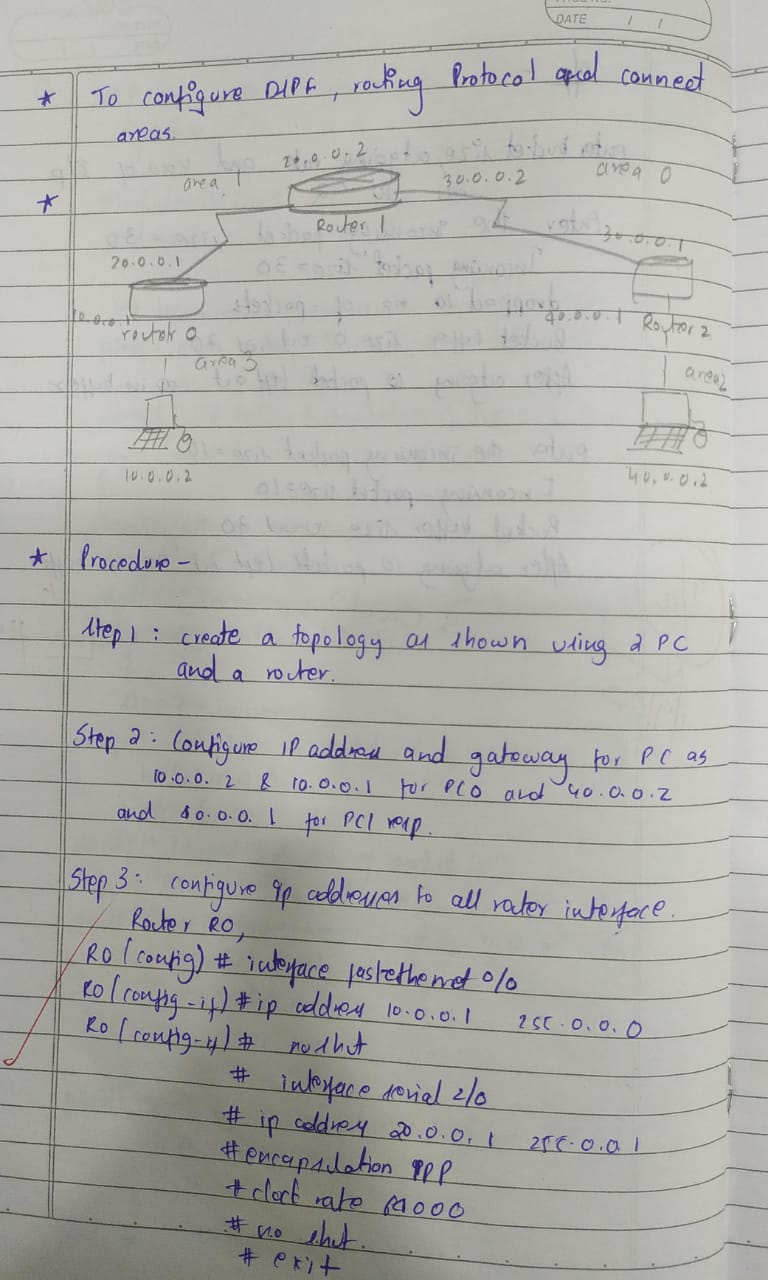 DATE / /
* To configure OSPF, routing Protocol and connect
areas.
*
area 1 20.0.0.2 30.0.0.2 area 0
Router 1
20.0.0.1 30.0.0.1
10.0.0.1 router 0 40.0.0.1 Router 2
area 3 area 2
10.0.0.2 40.0.0.2
* Procedure -
Step 1: create a topology as shown using 2 PC
and a router.
Step 2: Configure IP address and gateway for PC as
10.0.0.2 & 10.0.0.1 for PC0 and 40.0.0.2
and 40.0.0.1 for PC1 resp.
Step 3: configure ip addresses to all router interface.
Router R0,
R0 (config) # interface fastethernet 0/0
R0 (config-if) # ip address 10.0.0.1 255.0.0.0
R0 (config-if) # no shut
# interface serial 2/0
# ip address 20.0.0.1 255.0.0.1
# encapsulation ppp
# clock rate 64000
# no shut.
# exit